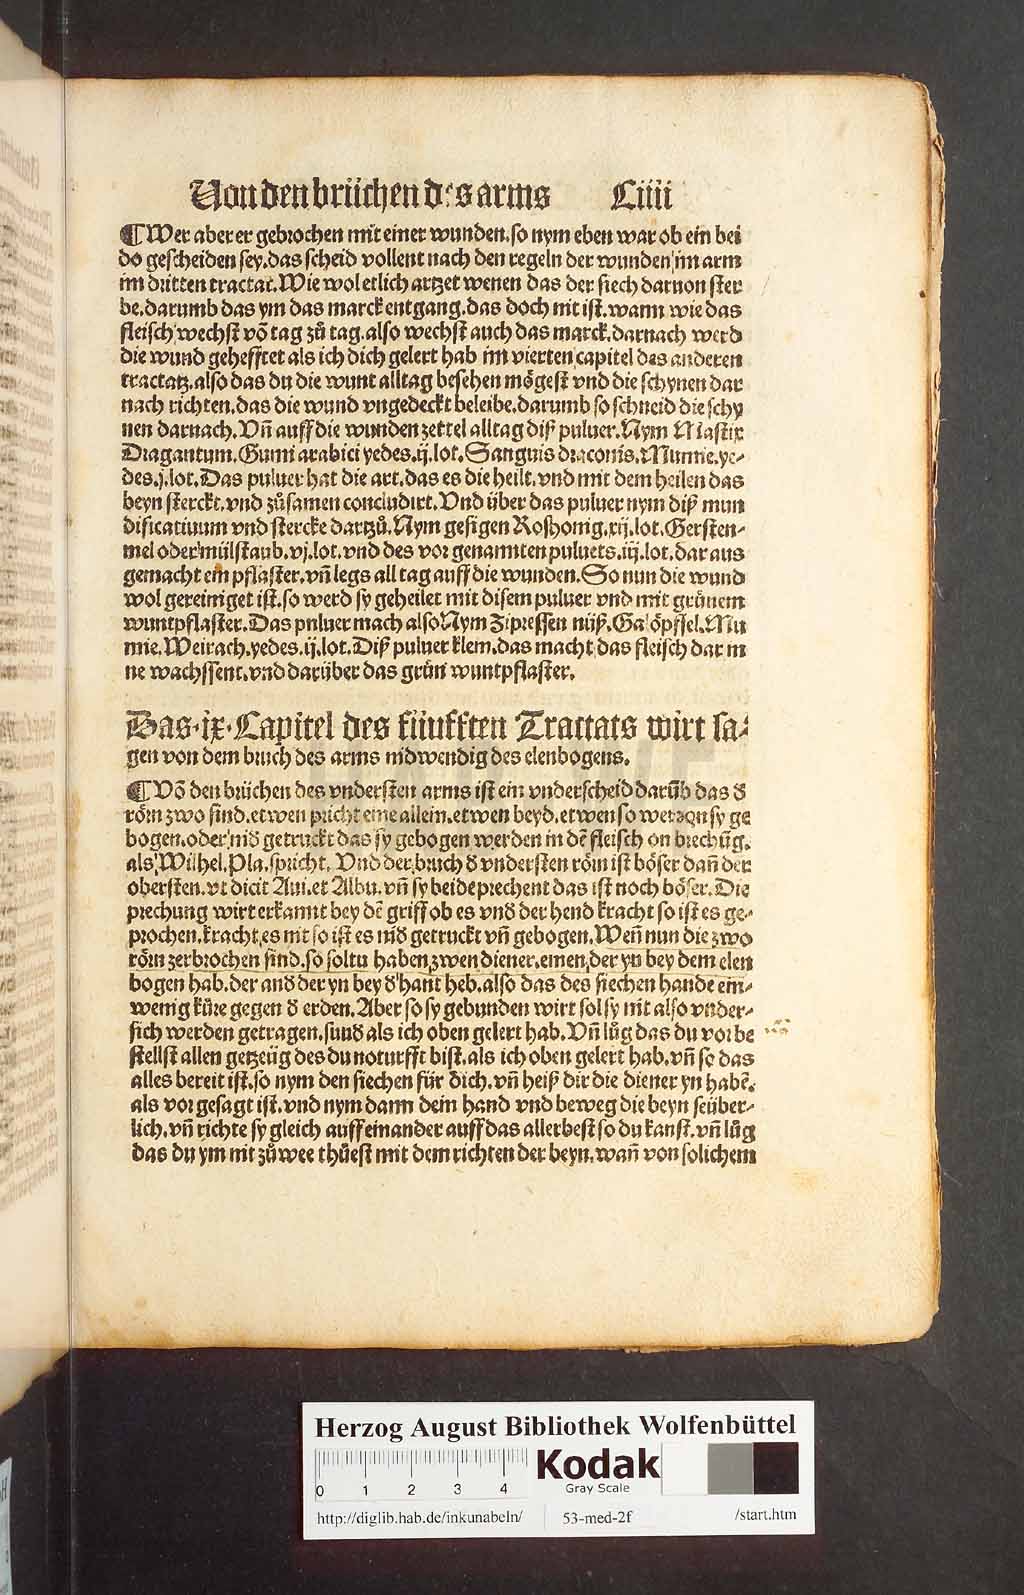 Von den brüchen des arms Liiii
¶Wer aber er gebrochen mit einer wunden.so nym eben war ob ein bei
do gescheiden sey.das scheid vollent nach den regeln der wunden im arm
im dritten tractat.Wie wol etlich artzet wenen das der siech daruon ster
be.darumb das ym das marck entgang.das doch nit ist.wann wie das
fleisch wechst võ tag zů tag.also wechst auch das marck.darnach werd
die wund gehefftet als ich dich gelert hab im vierten capitel des anderen
tractatz.also das du die wunt alltag besehen mögest vnd die schynen dar
nach richten.das die wund vngedeckt beleibe.darumb so schneid die schy
nen darnach.Vñ auff die wunden zettel alltag diß puluer.Nym Mastix
Dragantum.Gumi arabici yedes.ij.lot.Sanguis draconis.Mumie.ye-
des.j.lot.Das puluer hat die art.das es die heilt.vnd mit dem heilen das
beyn sterckt.vnd zůsamen concludirt.Vnd über das puluer nym diß mun
dificatiuum vnd stercke dartzů.Nym gesigen Roßhonig.xij.lot.Gersten-
mel oder mülstaub.vj.lot.vnd des vor genamten puluers.iij.lot.dar aus
gemacht ein pflaster.vñ legs all tag auff die wunden.So nun die wund
wol gereiniget ist.so werd sy geheilet mit disem puluer vnd mit grönem
wuntpflaster.Das puluer mach also Nym Zipressen nüß.Galöpffel.Mu
mie.Weirach.yedes.ij.lot.Diß puluer klem.das macht das fleisch dar in
ne wachssent.vnd darüber das grün wuntpflaster.
Das.ix.Capitel des füufften Tractats wirt sa-
gen von dem bruch des arms nidwendig des elenbogens.
¶Võ den brüchen des vndersten arms ist ein vnderscheid darũb das d̕
rörn zwo sind.etwen pricht eine allein.etwen beyd.etwen so werden sy ge
bogen.oder nid̕ getruckt das sy gebogen werden in dẽ fleisch on brechũg.
als Wilhel.Pla.spricht. Vnd der bruch d̕ vndersten rörn ist böser dañ der
obersten.vt dicit Aui.et Albu.vñ sy beide prechent das ist noch böser.Die
prechung wirt erkannt bey dẽ griff ob es vnd̕ der hend kracht so ist es ge-
prochen.kracht es nit so ist es nid̕ getruckt vñ gebogen.Weñ nun die zwo
rörn zerbrochen sind.so soltu haben zwen diener.einen der yn bey dem elen
bogen hab.der and̕ der yn bey d̕ hant heb.also das des siechen hande ein-
wenig küre gegen d̕ erden.Aber so sy gebunden wirt sol sy nit also vnder-
sich werden getragen.sund̕ als ich oben gelert hab.Vñ lůg das du vor be
stellst allen getzeüg des du noturfft bist.als ich oben gelert hab.vñ so das
alles bereit ist.so nym den siechen für dich.vñ heiß dir die diener yn habẽ.
als vor gesagt ist.vnd nym dann dein hand vnd beweg die beyn seüber-
lich.vñ richte sy gleich auff einander auff das allerbest so du kanst.vñ lůg
das du ym nit zů wee thůest mit dem richten der beyn.wañ von solichem
Herzog August Bibliothek Wolfenbüttel
0 1 2 3 4
Kodak
Gray Scale
http://diglib.hab.de/inkunabeln/ 53-med-2f /start.htm